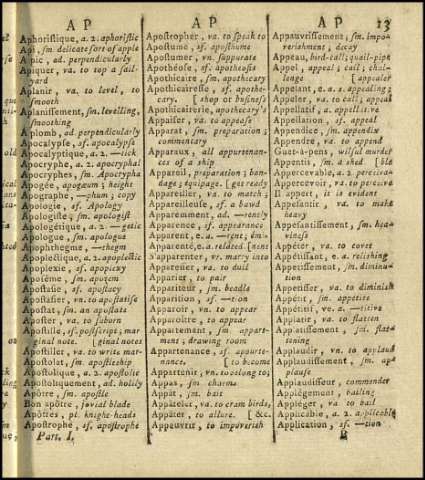 A P
Aphoristique, a. 2. aphoristic
Api, sm. delicate sort of apple
A pic, ad. perpendicularly
Apiquer, va. to top a sail-
yard
Aplanir, va. to level, to
smooth
Aplanissement, sm. levelling,
smoothing
Aplomb, ad. perpendicularly
Apocalypse, sf. apocalypse
Apocalyptique, a. 2. —tick
Apocryphe, a. 2. apocryphal
Apocryphes, sm. Apocrypha
Apogée, apogæum; height
Apographe, —phum; copy
Apologie, sf. Apology
Apologiste, sm. apologist
Apologétique, a. 2. —getic
Apologue, sm. apologue
Apophthegme, —thegm
Apoplectique, a. 2. apoplectic
Apoplexie, sf. apoplexy
Aposème, sm. apozem
Apostasie, sf. apostacy
Apostasier, vn. to apostatise
Apostat, sm. an apostate
Aposter, va. to suborn
Apostille, sf. postscript; mar
ginal note. [ginal notes
Apostiller, va. to write mar-
Apostolat, sm. apostleship
Apostolique, a. 2. apostolic
Apostoliquement, ad. holily
Apôtre, sm. apostle
Bon apôtre, jovial blade
Apôtres, pl. knight-heads
Apostrophe, sf. apostrophe
Part. I.
A P
Apostropher, va. to speak to
Apostume, sf. aposthume
Apostumer, vn. suppurate
Apothéose, sf. apotheosis
Apothicaire, sm. apothecary
Apothicairesse, sf. apothe-
cary,
Apothicairerie, apothecary's
Appaiser, va. to appease
Apparat, sm. preparation;
commentary
Apparaux, all appurtenan-
ces of a ship
Appareil, preparation; ban-
dage; equipage. [get ready
Appareiller, va. to match;
Appareilleuse, sf. a bawd
Apparemment, ad. —rently
Apparence, sf. appearance
Apparent, e, a. —rent; emi-
Apparenté, e a. related. [nent
S'apparenter, vr. marry into
Appareiller, va. to
Apparier, to pair
Appariteur, sm. beadle
Apparition, sf. —tion
Apparoir, va. to appear
Apparoître, to appear
Appartement, sm. apart-
ment; drawing room
Appartenance, sf. appurte-
nances. [to become
Appartenir, vn. to belong to;
Appas, sm. charms
Appât, sm. bait
Appâteler, va. to cram birds,
Appâter, to allure. [&c.
Appauvrir, to impoverish
A P
13
Appauvrissement, sm. impo-
verishment; decay
Appeau, bird-call; quail-pipe
Appel, appeal; call; chal-
lenge [appealer
Appelant, e, a. s. appealing;
Appeler, va. to call; appeal
Appellatif, a. appellative
Appellation, sf. appeal
Appendice, sm. appendix
Appendre, va. to append
Guet-apens, wilful murder
Appentis, sm. a shed [ble
Appercevable, a. 2. perceiva-
Appercevoir, va. to perceive
Il appert, it is evident
Appesantir, va. to make
heavy
Appesantissement, sm. hea-
viness
Appéter, va. to covet
Appétissant, e, a. relishing
Appetissement, sm. diminu-
tion
Appetisser, va. to diminish
Appétit, sm. appetite
Appétitif, ve. a. —titive
Applatir, va. to flatten
Applatissement, sm. flat-
tening
Applaudir, vn. to applaud
Applaudissement, sm. ap-
plause
Applaudisseur, commender
Applégement, bailing
Appléger, va. to bail
Applicable, a. 2. applicable
Application, sf. —tion
B